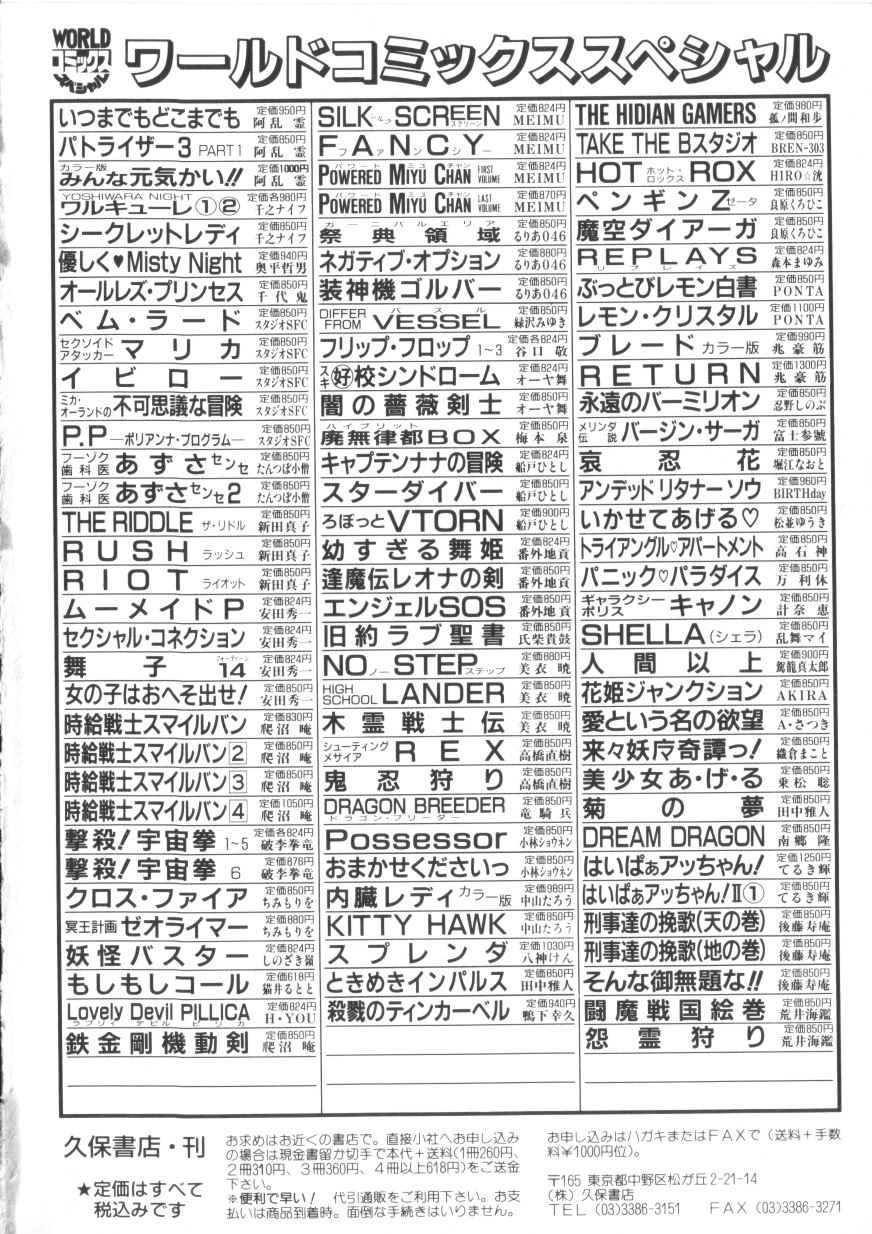 WORLD
コミックス
スペシャル
ワールドコミックススペシャル
いつまでもどこまでも 定価950円 阿乱霊
パトライザー3 PART1 定価850円 阿乱霊
カラー版 みんな元気かい!! 定価1000円 阿乱霊
YOSHIWARA NIGHT ワルキューレ①② 定価各980円 千之ナイフ
シークレットレディ 定価850円 千之ナイフ
優しく♥Misty Night 定価940円 奥平哲男
オールレズ・プリンセス 定価850円 千代鬼
ベム・ラード 定価850円 スタジオSFC
セクソイドアタッカー マリカ 定価850円 スタジオSFC
イビロー 定価850円 スタジオSFC
ミカ・オーランドの不可思議な冒険 定価850円 スタジオSFC
P.P ―ポリアンナ・プログラム― 定価850円 スタジオSFC
フーゾク歯科医 あずさセンセ 定価850円 たんつぼ小僧
フーゾク歯科医 あずさセンセ2 定価850円 たんつぼ小僧
THE RIDDLE ザ・リドル 定価850円 新田真子
RUSH ラッシュ 定価850円 新田真子
RIOT ライオット 定価850円 新田真子
ムーメイドP 定価824円 安田秀一
セクシャル・コネクション 定価824円 安田秀一
舞子14 フォーティーン 定価824円 安田秀一
女の子はおへそ出せ! 定価850円 安田秀一
時給戦士スマイルバン 定価830円 爬沼庵
時給戦士スマイルバン2 定価850円 爬沼庵
時給戦士スマイルバン3 定価850円 爬沼庵
時給戦士スマイルバン4 定価1050円 爬沼庵
撃殺!宇宙拳 1~5 定価各824円 破李拳竜
撃殺!宇宙拳 6 定価876円 破李拳竜
クロス・ファイア 定価850円 ちみもりを
冥王計画ゼオライマー 定価880円 ちみもりを
妖怪バスター 定価824円 しのざき嶺
もしもしコール 定価618円 猫井るとと
Lovely Devil PILLICA ラブリィ デビル ピリカ 定価824円 H・YOU
鉄金剛機動剣 定価850円 爬沼庵
SILK シルク SCREEN スクリーン 定価824円 MEIMU
FANCY ファンシー 定価824円 MEIMU
POWERED MIYU CHAN パワード ミユ チャン FIRST VOLUME 定価824円 MEIMU
POWERED MIYU CHAN パワード ミユ チャン LAST VOLUME 定価870円 MEIMU
祭典領域 カーニバルエリア 定価850円 るりあ046
ネガティブ・オプション 定価880円 るりあ046
装神機ゴルバー 定価850円 るりあ046
DIFFER FROM VESSEL 定価850円 緑沢みゆき
フリップ・フロップ 1~3 定価各824円 谷口敬
㊛校シンドローム 定価824円 オーヤ舞
闇の薔薇剣士 定価850円 オーヤ舞
廃無律都BOX ハイブリット 定価850円 梅本泉
キャプテンナナの冒険 定価824円 船戸ひとし
スターダイバー 定価850円 船戸ひとし
ろぼっとVTORN 定価900円 船戸ひとし
幼すぎる舞姫 定価824円 番外地貢
逢魔伝レオナの剣 定価850円 番外地貢
エンジェルSOS 定価850円 番外地貢
旧約ラブ聖書 定価850円 氏柴貴鼓
NO ノー STEP ステップ 定価880円 美衣暁
HIGH SCHOOL LANDER 定価850円 美衣暁
木霊戦士伝 定価850円 美衣暁
シューティングメサイア REX 定価850円 高橋直樹
鬼忍狩り 定価850円 高橋直樹
DRAGON BREEDER ドラゴン・ブリーダー 定価850円 竜騎兵
Possessor 定価850円 小林ショウネン
おまかせくださいっ 定価850円 小林ショウネン
内臓レディ カラー版 定価989円 中山たろう
KITTY HAWK 定価850円 中山たろう
スプレンダ 定価1030円 八神けん
ときめきインパルス 定価850円 田中雅人
殺戮のティンカーベル 定価940円 鴨下幸久
THE HIDIAN GAMERS 定価980円 孤ノ間和歩
TAKE THE Bスタジオ 定価850円 BREN-303
HOT ホット・ロックス ROX 定価824円 HIRO☆洸
ペンギンZ ゼータ 定価850円 良原くろひこ
魔空ダイアーガ 定価850円 良原くろひこ
REPLAYS リプレイズ 定価824円 森本まゆみ
ぶっとびレモン白書 定価850円 PONTA
レモン・クリスタル 定価1100円 PONTA
ブレード カラー版 定価990円 兆豪筋
RETURN 定価1300円 兆豪筋
永遠のバーミリオン 定価850円 忍野しのぶ
メリンダ伝説 バージン・サーガ 定価850円 富士参號
哀忍花 定価850円 堀江なおと
アンデッドリタナーソウ 定価960円 BIRTHday
いかせてあげる♡ 定価850円 松並ゆうき
トライアングル♡アパートメント 定価850円 高石神
パニック♡パラダイス 定価850円 万利休
ギャラクシーポリス キャノン 定価850円 計奈恵
SHELLA(シェラ) 定価850円 乱舞マイ
人間以上 定価900円 駕籠真太郎
花姫ジャンクション 定価850円 AKIRA
愛という名の欲望 定価850円 A・さつき
来々妖庁奇譚っ! 定価850円 織倉まこと
美少女あ・げ・る 定価850円 乗松聡
菊の夢 定価850円 田中雅人
DREAM DRAGON 定価850円 南郷隆
はいぱぁアッちゃん! 定価1250円 てるき輝
はいぱぁアッちゃん!II① 定価850円 てるき輝
刑事達の挽歌(天の巻) 定価850円 後藤寿庵
刑事達の挽歌(地の巻) 定価850円 後藤寿庵
そんな御無題な!! 定価850円 後藤寿庵
闘魔戦国絵巻 定価850円 荒井海鑑
怨霊狩り 定価850円 荒井海鑑
久保書店・刊
★定価はすべて
税込みです
お求めはお近くの書店で。直接小社へお申し込み
の場合は現金書留か切手で本代+送料(1冊260円、
2冊310円、3冊360円、4冊以上618円)をご送金
下さい。
※便利で早い! 代引通販をご利用下さい。お支
払いは商品到着時。面倒な手続きはいりません。
お申し込みはハガキまたはFAXで(送料+手数
料¥1000円位)。
〒165 東京都中野区松が丘2-21-14
(株)久保書店
TEL (03)3386-3151 FAX (03)3386-3271